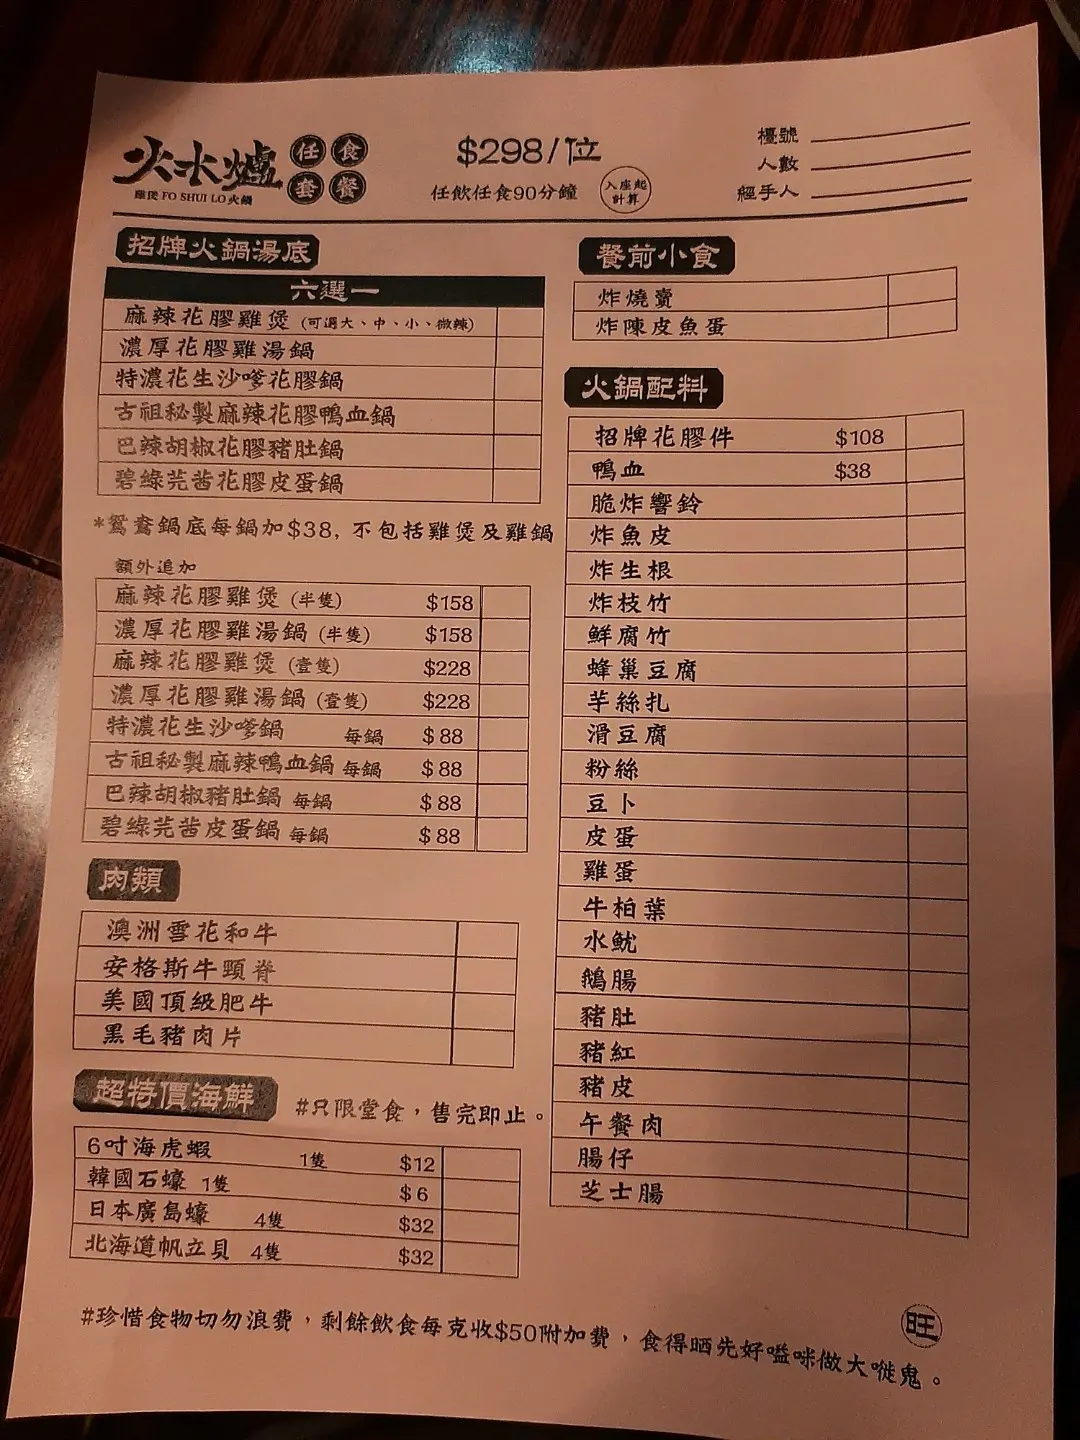 火水爐 任食套餐
雞煲 FO SHUI LO 火鍋
$298/位
任飲任食90分鐘 入座起計算
檯號
人數
經手人
招牌火鍋湯底
六選一
麻辣花膠雞煲 (可選大、中、小、微辣)
濃厚花膠雞湯鍋
特濃花生沙嗲花膠鍋
古祖秘製麻辣花膠鴨血鍋
巴辣胡椒花膠豬肚鍋
碧綠芫茜花膠皮蛋鍋
*鴛鴦鍋底每鍋加$38, 不包括雞煲及雞鍋
額外追加
麻辣花膠雞煲 (半隻) $158
濃厚花膠雞湯鍋 (半隻) $158
麻辣花膠雞煲 (壹隻) $228
濃厚花膠雞湯鍋 (壹隻) $228
特濃花生沙嗲鍋 每鍋 $88
古祖秘製麻辣鴨血鍋 每鍋 $88
巴辣胡椒豬肚鍋 每鍋 $88
碧綠芫茜皮蛋鍋 每鍋 $88
肉類
澳洲雪花和牛
安格斯牛頸脊
美國頂級肥牛
黑毛豬肉片
超特價海鮮 #只限堂食，售完即止。
6吋海虎蝦 1隻 $12
韓國石蠔 1隻 $6
日本廣島蠔 4隻 $32
北海道帆立貝 4隻 $32
餐前小食
炸燒賣
炸陳皮魚蛋
火鍋配料
招牌花膠件 $108
鴨血 $38
脆炸響鈴
炸魚皮
炸生根
炸枝竹
鮮腐竹
蜂巢豆腐
芋絲扎
滑豆腐
粉絲
豆卜
皮蛋
雞蛋
牛柏葉
水魷
鵝腸
豬肚
豬紅
豬皮
午餐肉
腸仔
芝士腸
#珍惜食物切勿浪費，剩餘飲食每克收$50附加費，食得晒先好嗌咪做大嘥鬼。
旺